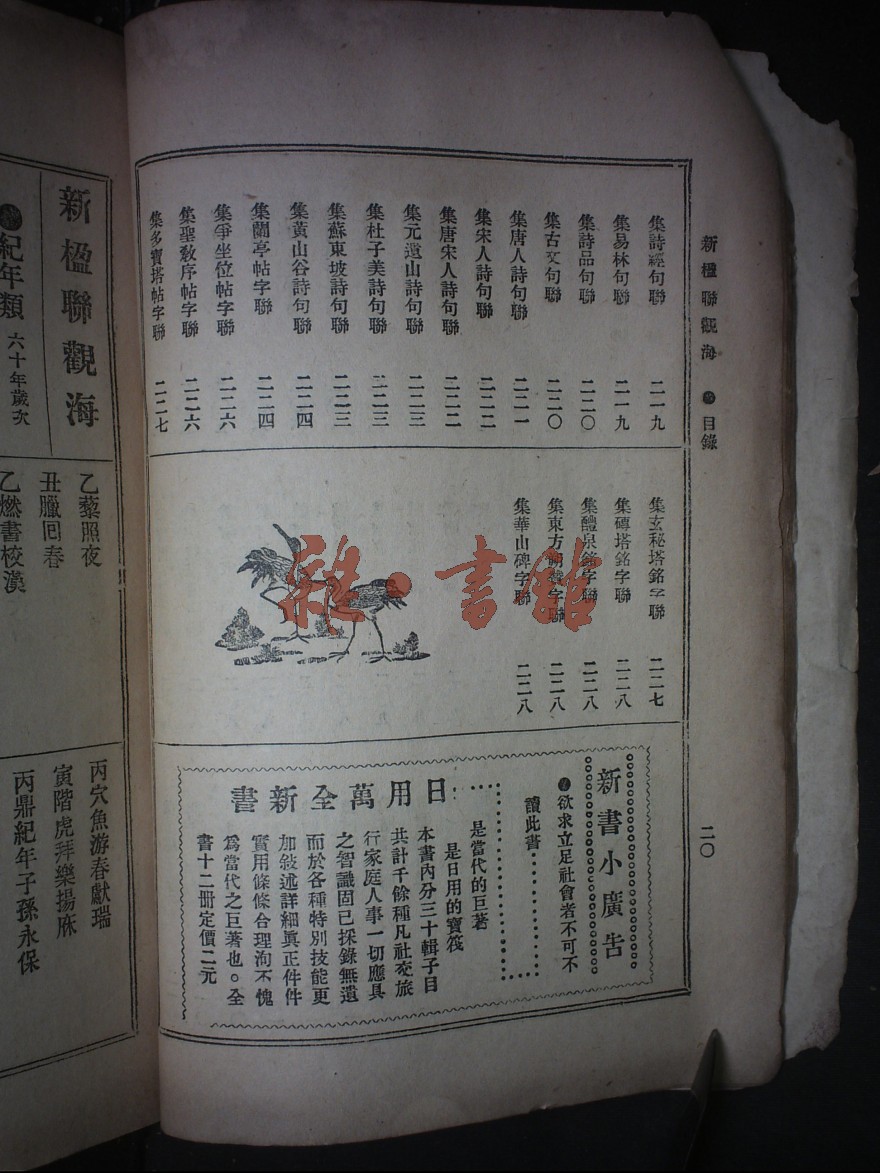 新楹聯觀海 目錄
二〇
集詩經句聯 二一九
集易林句聯 二一九
集詩品句聯 二二〇
集古文句聯 二二〇
集唐人詩句聯 二二一
集宋人詩句聯 二二二
集唐宋人詩句聯 二二二
集元遺山詩句聯 二二三
集杜子美詩句聯 二二三
集蘇東坡詩句聯 二二三
集黃山谷詩句聯 二二四
集蘭亭帖字聯 二二四
集爭坐位帖字聯 二二六
集聖敎序帖字聯 二二六
集多寶塔帖字聯 二二七
集玄秘塔銘字聯 二二七
集磚塔銘字聯 二二八
集醴泉銘字聯 二二八
集東方朔贊字聯 二二八
集華山碑字聯 二二八
新書小廣告
欲求立足社會者不可不
讀此書
日用萬全新書
是當代的巨著
是日用的寶筏
本書內分三十輯子目
共計千餘種凡社交旅
行家庭人事一切應具
之智識固已採錄無遺
而於各種特別技能更
加敘述詳細眞正件件
實用條條合理洵不愧
爲當代之巨著也。全
書十二册定價二元
新楹聯觀海
紀年類 六十年歲次
乙藜照夜
丑臘囘春
乙燃書校漢
丙穴魚游春獻瑞
寅階虎拜樂揚庥
丙鼎紀年子孫永保
雜·書館